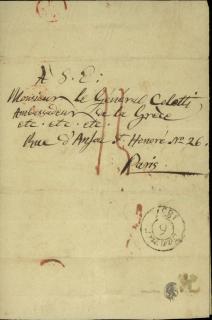 A S. E:
Monsieur le Général Coletti,
Ambassadeur de la Grèce
etc. etc. etc.
Rue d'Anjou St Honoré No 26.
Paris.